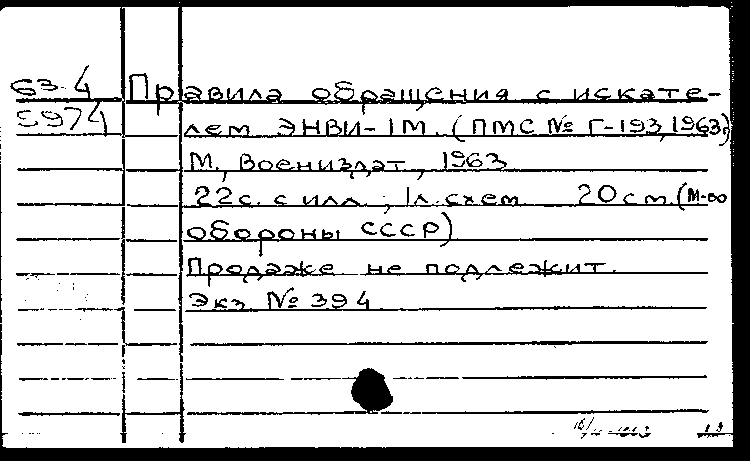 63-4 Правила обращения с искате-
5974 лем ЭНВИ-1М. (ПМС № Г-193, 1963)
М., Воениздат, 1963
22 с. с илл., 1 л. схем 20 см. (М-во
обороны СССР)
Продаже не подлежит.
Экз № 394